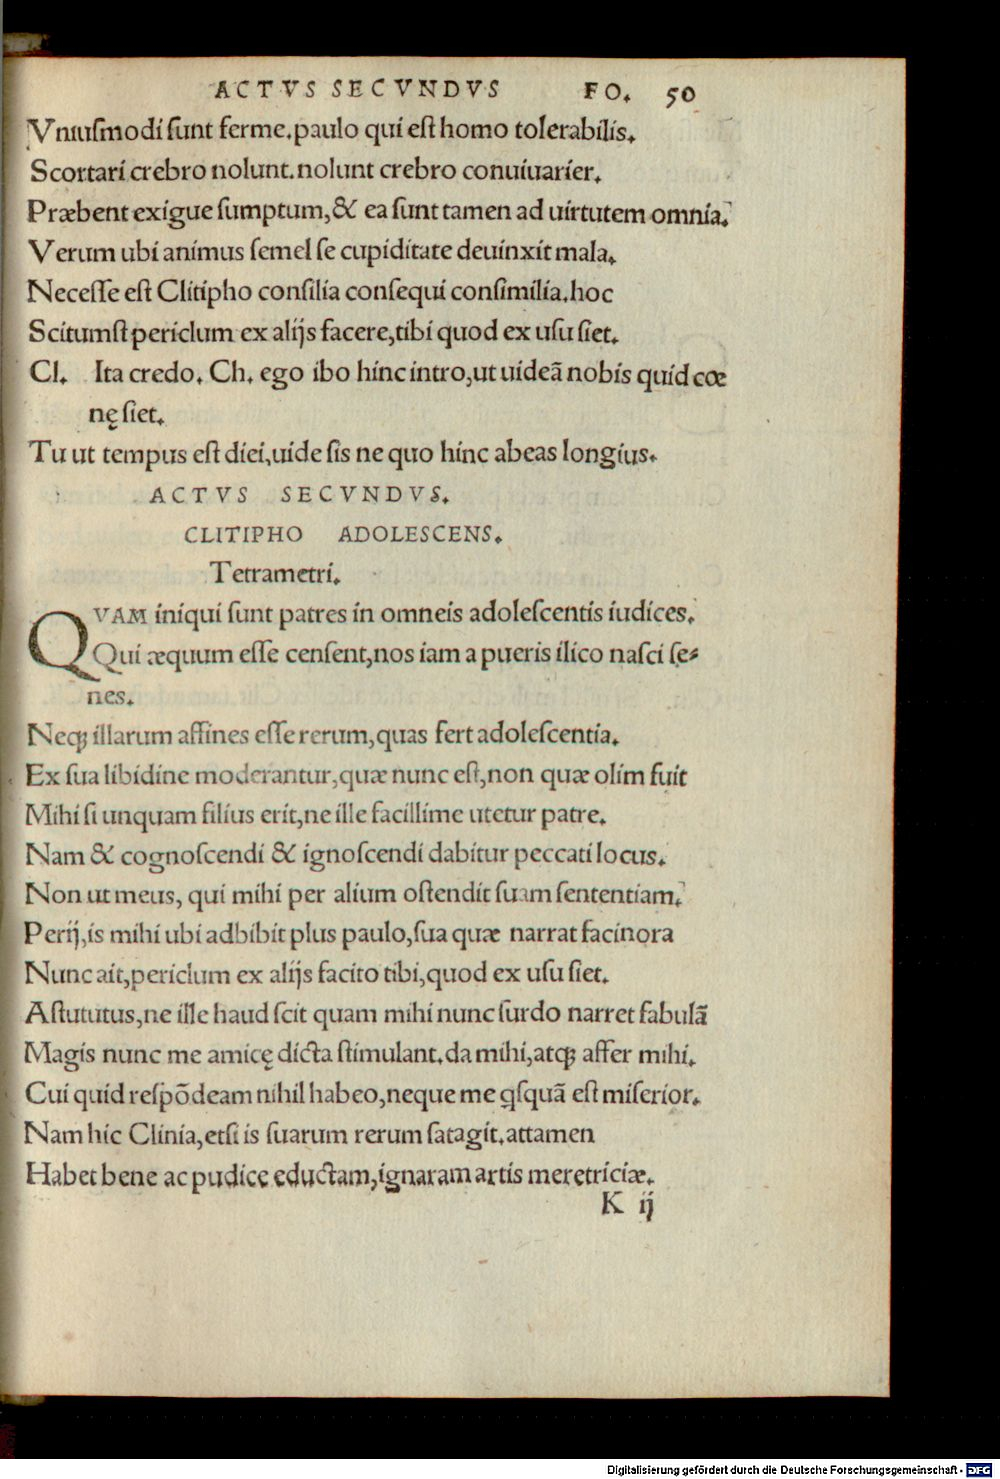 ACTVS SECVNDVS FO. 50
Vniuſmodi ſunt ferme.paulo qui eſt homo tolerabilis.
Scortari crebro nolunt.nolunt crebro conuiuarier.
Præbent exigue ſumptum,& ea ſunt tamen ad uirtutem omnia.
Verum ubi animus ſemel ſe cupiditate deuinxit mala.
Neceſſe eſt Clitipho conſilia conſequi conſimilia.hoc
Scitumſt periclum ex alijs facere,tibi quod ex uſu ſiet.
Cl. Ita credo. Ch. ego ibo hinc intro,ut uideā nobis quid cœ
nę ſiet.
Tu ut tempus eſt diei,uide ſis ne quo hinc abeas longius.
ACTVS SECVNDVS.
CLITIPHO ADOLESCENS.
Tetrametri.
QVAM iniqui ſunt patres in omneis adoleſcentis iudices.
Qui æquum eſſe cenſent,nos iam a pueris ilico naſci ſe-
nes.
Neqꝫ illarum affines eſſe rerum,quas fert adoleſcentia.
Ex ſua libidine moderantur,quæ nunc eſt,non quæ olim fuit
Mihi ſi unquam filius erit,ne ille facillime utetur patre.
Nam & cognoſcendi & ignoſcendi dabitur peccati locus.
Non ut meus, qui mihi per alium oſtendit ſuam ſententiam.
Perij,is mihi ubi adbibit plus paulo,ſua quæ narrat facinora
Nunc ait,periclum ex alijs facito tibi,quod ex uſu ſiet.
Aſtututus,ne ille haud ſcit quam mihi nunc ſurdo narret fabulā
Magis nunc me amicę dicta ſtimulant.da mihi,atqꝫ affer mihi.
Cui quid reſpōdeam nihil habeo,neque me qſquā eſt miſerior.
Nam hic Clinia,etſi is ſuarum rerum ſatagit.attamen
Habet bene ac pudice eductam,ignaram artis meretriciæ.
K ij
Digitalisierung gefördert durch die Deutsche Forschungsgemeinschaft - DFG